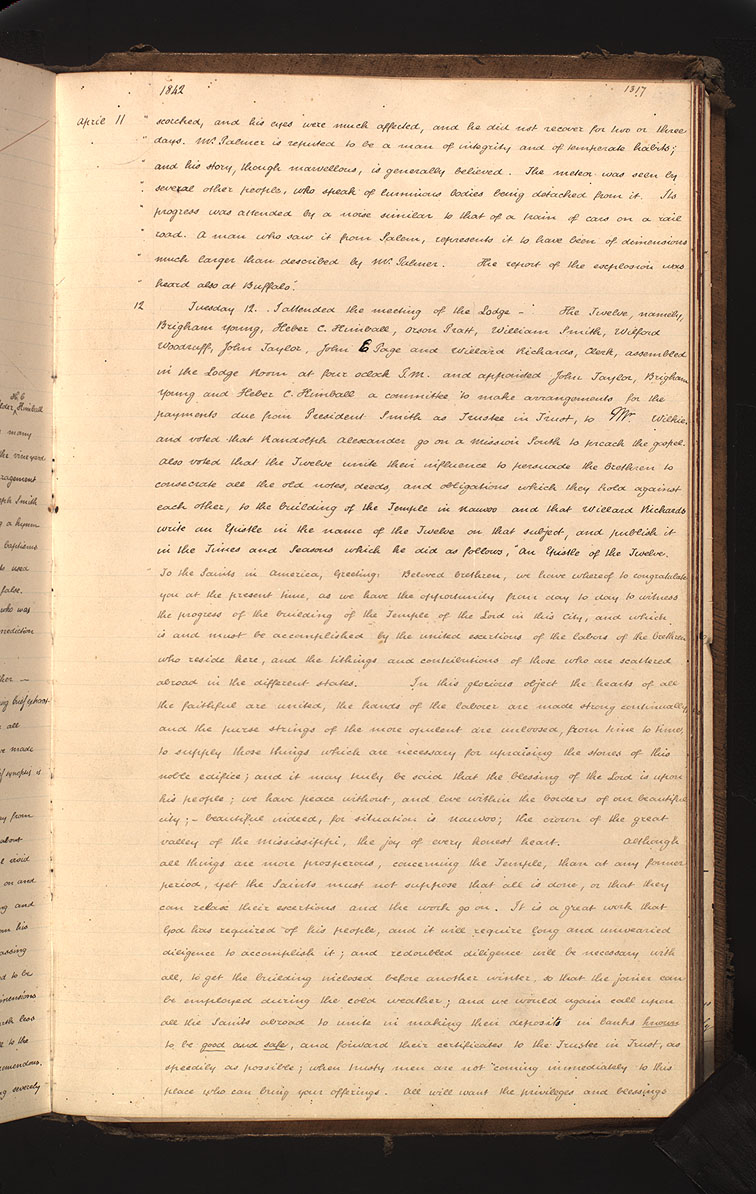 1842
1317
April 11 " scorched, and his eyes were much affected, and he did not recover for two or three
" days. Mr. Palmer is reputed to be a man of integrity and of temperate habits;
" and his story, though marvellous, is generally believed. The meteor was seen by
" several other people, who speak of luminous bodies being detached from it. Its
" progress was attended by a noise similar to that of a train of cars on a rail
" road. A man who saw it from Salem, represents it to have been of dimensions
" much larger than described by Mr. Palmer. The report of the explosion was
" heard also at Buffalo".
12 Tuesday 12. I attended the meeting of the Lodge - The Twelve, namely,
Brigham Young, Heber C. Kimball, Orson Pratt, William Smith, Wilford
Woodruff, John Taylor, John E Page and Willard Richards, Clerk, assembled
in the Lodge Room at four oclock P.M. and appointed John Taylor, Brigham
Young and Heber C. Kimball a committee to make arrangements for the
payments due from President Smith as Trustee in Trust, to Mr. Wilkie.
and voted that Randolph Alexander go on a Mission South to preach the gospel.
Also voted that the Twelve unite their influence to persuade the brethren to
consecrate all the old notes, deeds, and obligations which they hold against
each other, to the building of the Temple in Nauvoo and that Willard Richards
write an Epistle in the name of the Twelve on that subject, and publish it
in the Times and Seasons which he did as follows, "An Epistle of the Twelve.
" To the Saints in America, Greeting: Beloved brethren, we have whereof to congratulate
you at the present time, as we have the opportunity from day to day to witness
the progress of the building of the Temple of the Lord in this city, and which
is and must be accomplished by the united exertions of the labors of the brethren
who reside here, and the tithings and contributions of those who are scattered
abroad in the different states. In this glorious object the hearts of all
the faithful are united, the hands of the laborer are made strong continually,
and the purse strings of the more opulent are unloosed, from time to time,
to supply those things which are necessary for upraising the stones of this
noble edifice; and it may truly be said that the blessing of the Lord is upon
his people; we have peace without, and love within the borders of our beautiful
city; - beautiful indeed, for situation is Nauvoo; the crown of the great
valley of the Mississippi, the joy of every honest heart. Although
all things are more prosperous, concerning the Temple, than at any former
period, yet the Saints must not suppose that all is done, or that they
can relax their exertions and the work go on. It is a great work that
God has required of his people, and it will require long and unwearied
diligence to accomplish it; and redoubled diligence will be necessary with
all, to get the building inclosed before another winter, so that the joiner can
be employed during the cold weather; and we would again call upon
all the Saints abroad to unite in making their deposits in banks known
to be good and safe, and forward their certificates to the Trustee in Trust, as
speedily as possible; when trusty men are not coming immediately to this
place who can bring your offerings. All will want the privileges and blessings